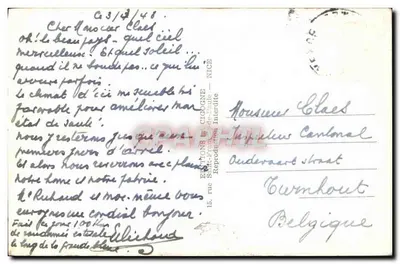 Ce 3/3/48.
Cher Monsieur Claes
oh! le beau pays – quel ciel
merveilleux! Et quel soleil...
quand il ne boude pas... ce qui lui
arrive parfois.
Le climat d'ici me semble très
favorable pour améliorer mon
état de santé.
nous y resterons jusque aux
premiers jours d'avril.
Et alors nous reverrons avec plaisir
notre home et notre patrie.
Mr Ruhaud et moi-même vous
envoyons un cordial bonjour.
Fait
le long de la grande bleue.
EDITIONS GIGOGNE
NICE
Reproduction Interdite
Monsieur Claes
Inspecteur Cantonal
Oudevaart straat
Turnhout
Belgique